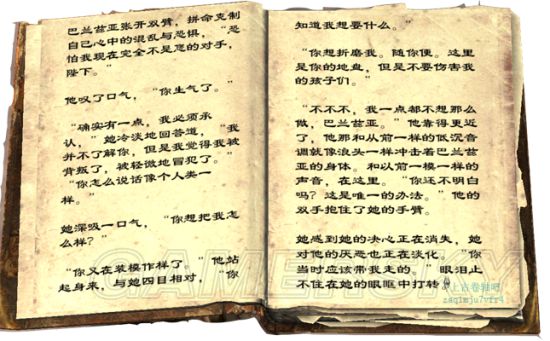 巴兰兹亚张开双臂，拼命克制
自己心中的混乱与恐惧，“恐
怕我现在完全不是您的对手，
陛下。”
他叹了口气，“你生气了。”
“确实有一点，我必须承
认，”她冷淡地回答道，“我
并不了解你，但是我觉得我被
背叛了，被轻微地冒犯了。”
“你怎么说话像个人类一
样。”
她深吸一口气，“你想把我怎
么样？”
“你又在装模作样了，”他站
起身来，与她四目相对，“你
知道我想要什么。”
“你想折磨我。随你便。这里
是你的地盘，但是不要伤害我
的孩子们。”
“不不不，我一点都不想那么
做，巴兰兹亚。”他靠得更近
了，他那和从前一样的低沉音
调就像浪头一样冲击着巴兰兹
亚的身体。和以前一模一样的
声音，在这里。“你还不明白
吗？这是唯一的办法。”他的
双手抱住了她的手臂。
她感到她的决心正在消失，她
对他的厌恶也正在淡化。“你
当时应该带我走的。”眼泪止
不住在她的眼眶中打转。
上古卷轴吧
zaqimju7vfr4
GAMERSKY